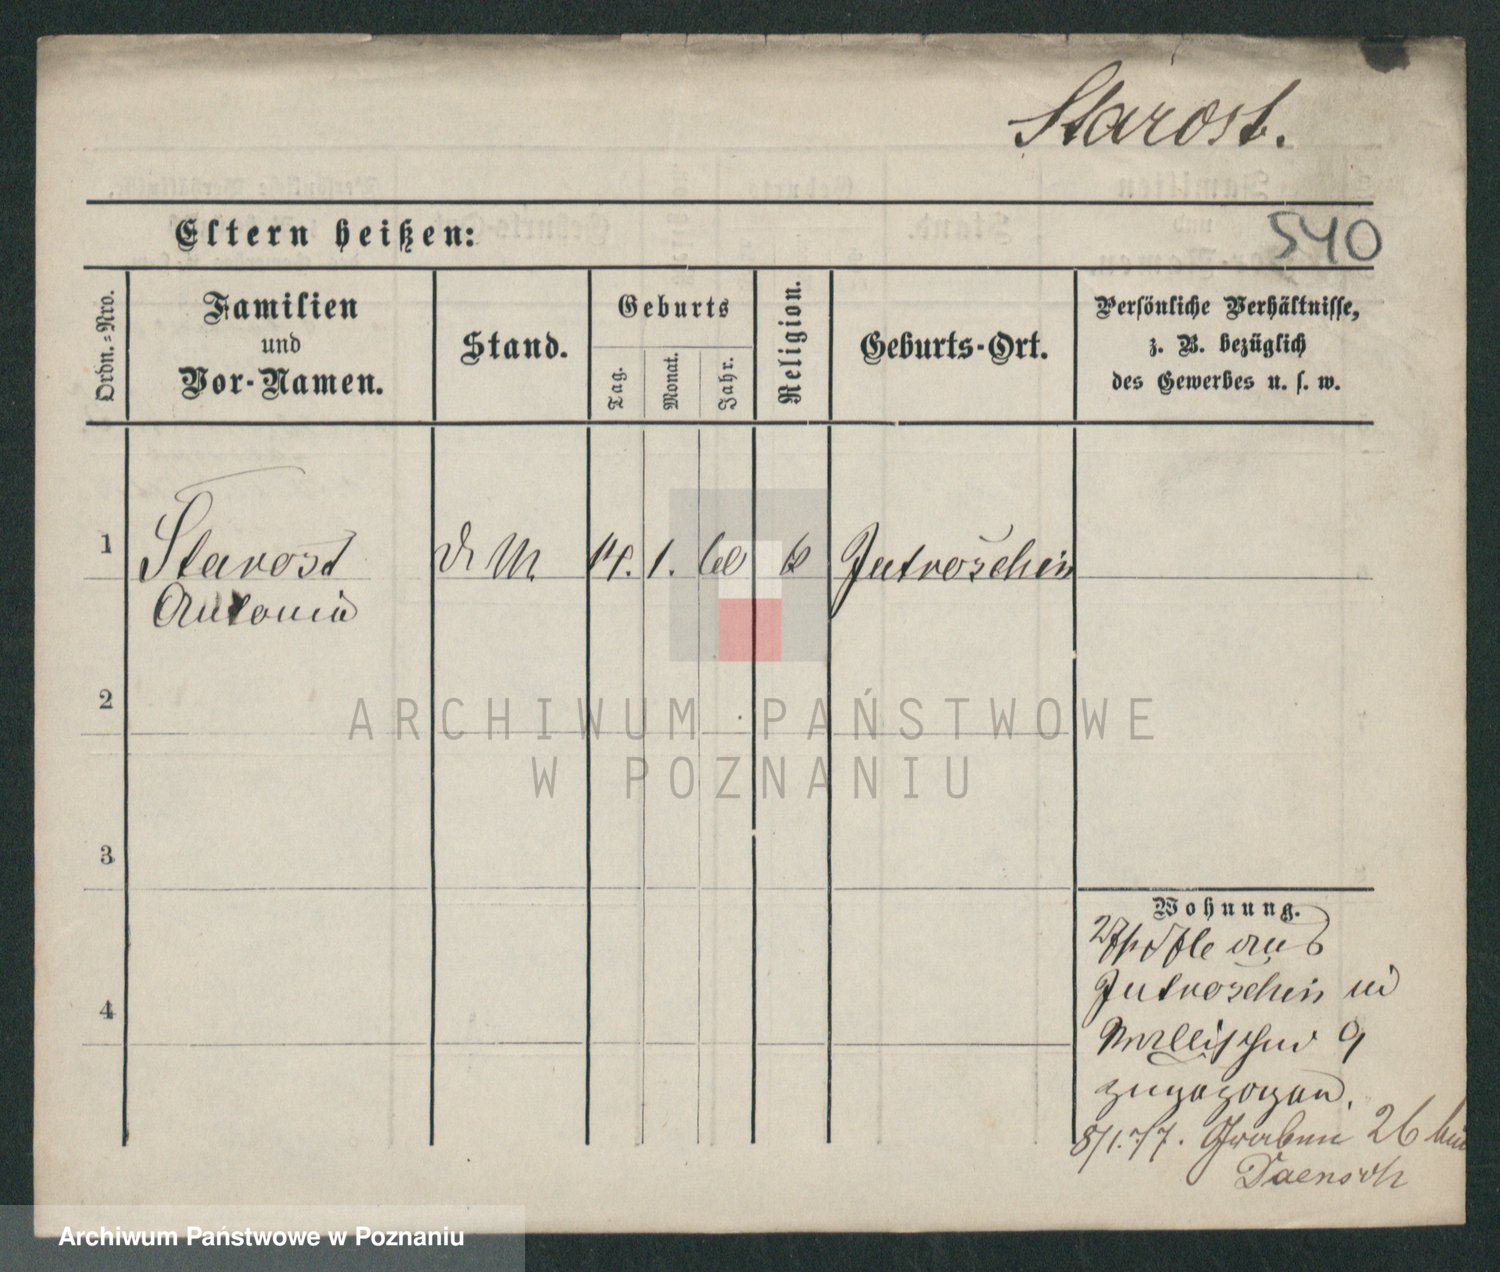 Starost.
540
Eltern heißen:
Ordn.-Nro.
Familien
und
Vor-Namen.
Stand.
Geburts
Tag.
Monat.
Jahr.
Religion.
Geburts-Ort.
Persönliche Verhältnisse,
z. B. bezüglich
des Gewerbes u. s. w.
1
Starost
Antonia
d. M.
14. 1. 60
k
Jutroschin
2
3
4
Wohnung.
aus
Jutroschin in
9
zugezogen.
8/1.77. Graben 26 bei
Daensch
ARCHIWUM PAŃSTWOWE
W POZNANIU
Archiwum Państwowe w Poznaniu